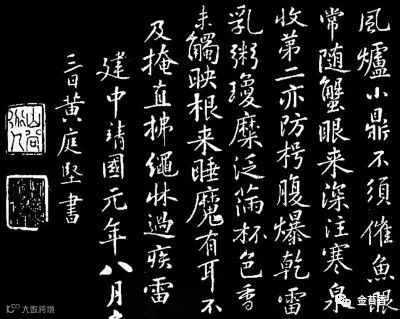 風爐小鼎不須催魚眼
常随蟹眼来深注寒泉
收第二亦防枵腹爆乾雷
乳粥瓊糜泛滿杯色香
未觸映根来睡魔有耳不
及掩直拂繩牀過疾雷
建中靖國元年八月
三日黄庭堅書
大数跨境